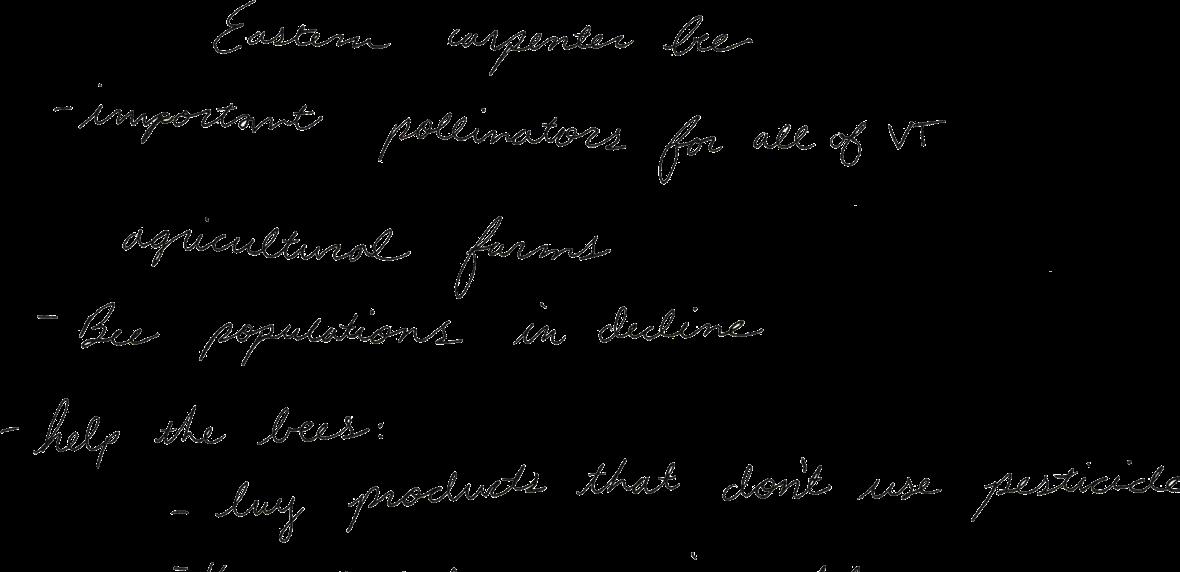 Eastern carpenter bee
- important pollinators for all of VT
agricultural farms
- Bee populations in decline
- help the bees:
- buy products that don't use pesticide